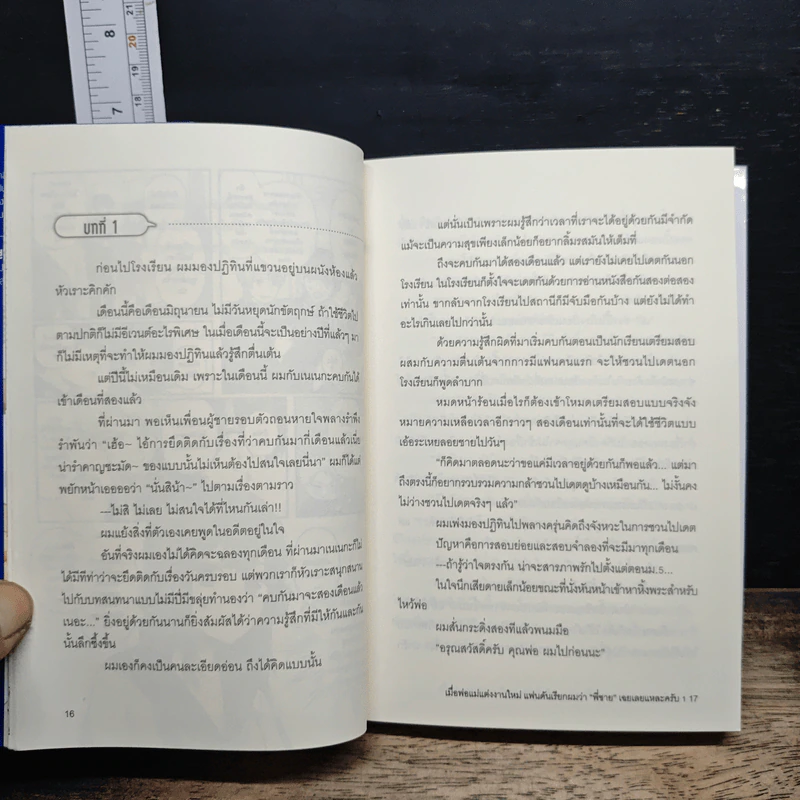 8
7
21
20
19
18
บทที่ 1
ก่อนไปโรงเรียน ผมมองปฏิทินที่แขวนอยู่บนผนังห้องแล้ว
หัวเราะคิกคัก
เดือนนี้คือเดือนมิถุนายน ไม่มีวันหยุดนักขัตฤกษ์ ถ้าใช้ชีวิตไป
ตามปกติก็ไม่มีอีเวนต์อะไรพิเศษ ในเมื่อเดือนนี้จะเป็นอย่างปีที่แล้วๆ มา
ก็ไม่มีเหตุที่จะทำให้ผมมองปฏิทินแล้วรู้สึกตื่นเต้น
แต่ปีนี้ไม่เหมือนเดิม เพราะในเดือนนี้ ผมกับเนเนกะคบกันได้
เข้าเดือนที่สองแล้ว
ที่ผ่านมา พอเห็นเพื่อนผู้ชายรอบตัวถอนหายใจพลางรำพึง
รำพันว่า “เฮ้อ~ ไอ้การยึดติดกับเรื่องที่ว่าคบกันมากี่เดือนแล้วเนี่ย
น่ารำคาญชะมัด~ ของแบบนั้นไม่เห็นต้องไปสนใจเลยนี่นา” ผมก็ได้แต่
พยักหน้าเออออว่า “นั่นสิน้า~” ไปตามเรื่องตามราว
—ไม่สิ ไม่เลย ไม่สนใจได้ที่ไหนกันเล่า!!
ผมแย้งสิ่งที่ตัวเองเคยพูดในอดีตอยู่ในใจ
อันที่จริงผมเองไม่ได้คิดจะฉลองทุกเดือน ที่ผ่านมาเนเนกะก็ไม่
ได้มีทีท่าว่าจะยึดติดกับเรื่องวันครบรอบ แต่พวกเราก็หัวเราะสนุกสนาน
ไปกับบทสนทนาแบบไม่มีปี่มีขลุ่ยทำนองว่า “คบกันมาจะสองเดือนแล้ว
เนอะ...” ยิ่งอยู่ด้วยกันนานก็ยิ่งสัมผัสได้ว่าความรู้สึกที่มีให้กันและกัน
นั้นลึกซึ้งขึ้น
ผมเองก็คงเป็นคนละเอียดอ่อน ถึงได้คิดแบบนั้น
16
แต่นั่นเป็นเพราะผมรู้สึกว่าเวลาที่เราจะได้อยู่ด้วยกันมีจำกัด
แม้จะเป็นความสุขเพียงเล็กน้อยก็อยากลิ้มรสมันให้เต็มที่
ถึงจะคบกันมาได้สองเดือนแล้ว แต่เรายังไม่เคยไปเดตกันนอก
โรงเรียน ในโรงเรียนก็ตั้งใจจะเดตกันด้วยการอ่านหนังสือกันสองต่อสอง
เท่านั้น ขากลับจากโรงเรียนไปสถานีก็มีจับมือกันบ้าง แต่ยังไม่ได้ทำ
อะไรเกินเลยไปกว่านั้น
ด้วยความรู้สึกผิดที่มาเริ่มคบกันตอนเป็นนักเรียนเตรียมสอบ
ผสมกับความตื่นเต้นจากการมีแฟนคนแรก จะให้ชวนไปเดตนอก
โรงเรียนก็พูดลำบาก
หมดหน้าร้อนเมื่อไรก็ต้องเข้าโหมดเตรียมสอบแบบจริงจัง
หมายความเหลือเวลาอีกราวๆ สองเดือนเท่านั้นที่จะได้ใช้ชีวิตแบบ
เอ้อระเหยลอยชายไปวันๆ
“ก็คิดมาตลอดนะว่าขอแค่มีเวลาอยู่ด้วยกันก็พอแล้ว... แต่มา
ถึงตรงนี้ก็อยากรวบรวมความกล้าชวนไปเดตดูบ้างเหมือนกัน... ไม่งั้นคง
ไม่ว่างชวนไปเดตจริงๆ แล้ว”
ผมเพ่งมองปฏิทินไปพลางครุ่นคิดถึงจังหวะในการชวนไปเดต
ปัญหาคือการสอบย่อยและสอบจำลองที่จะมีมาทุกเดือน
—ถ้ารู้ว่าใจตรงกัน น่าจะสารภาพรักไปตั้งแต่ตอนม.5...
ในใจนึกเสียดายเล็กน้อยขณะที่นั่งหันหน้าเข้าหาหิ้งพระสำหรับ
ไหว้พ่อ
ผมสั่นกระดิ่งสองทีแล้วพนมมือ
“อรุณสวัสดิ์ครับ คุณพ่อ ผมไปก่อนนะ”
เมื่อพ่อแม่แต่งงานใหม่ แฟนดันเรียกผมว่า “พี่ชาย” เฉยเลยแหละครับ 1 17